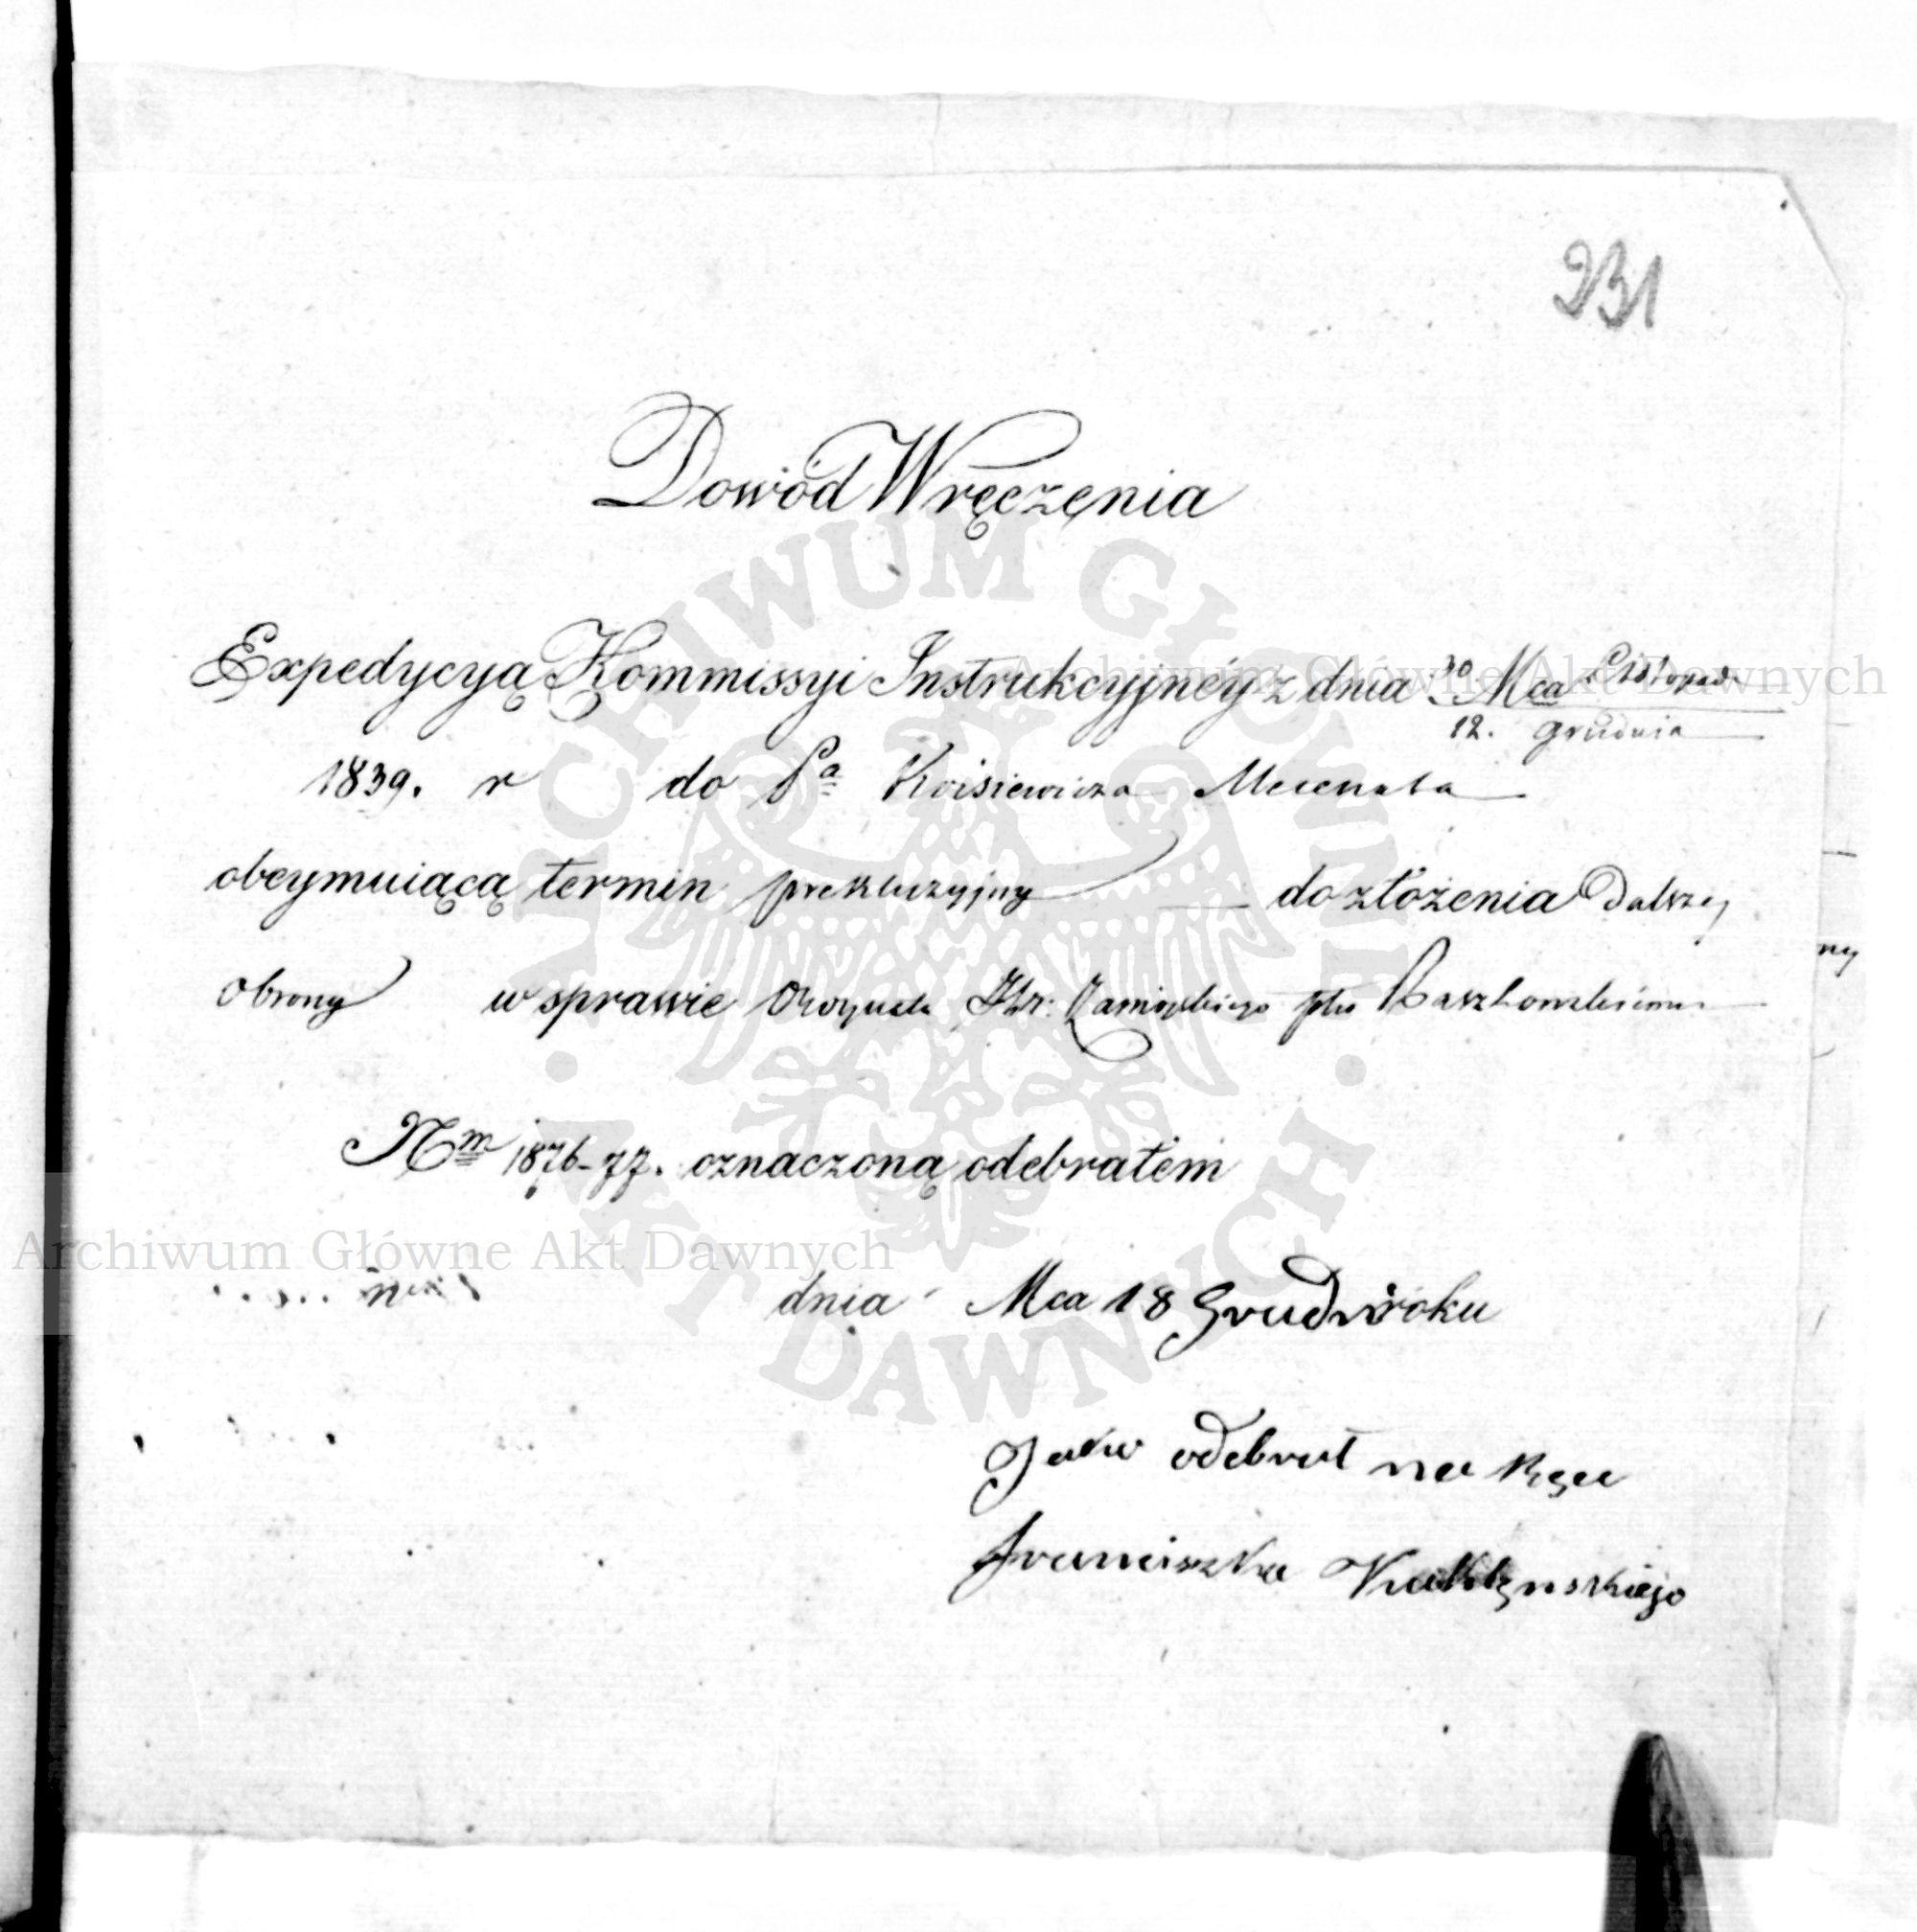 231
Dowód Wręczenia
Expedycyą Kommissyi Instrukcyjnéy z dnia 30 Mca Listopada
12. Grudnia
1839. r do Pa Krisiewicza Mecenata
obeymuiącą termin prekluzyjny do złożenia Dalszey
Obrony w sprawie Hr: Zamoyskiego Raszkowskiemu
Nm 1876-77. oznaczoną odebrałem
dnia Mca 18 Grudnia roku
Jako odebrał na Ręce
Franciszka
Archiwum Główne Akt Dawnych
Archiwum Główne Akt Dawnych
ARCHIWUM GŁÓWNE
AKT DAWNYCH
ny